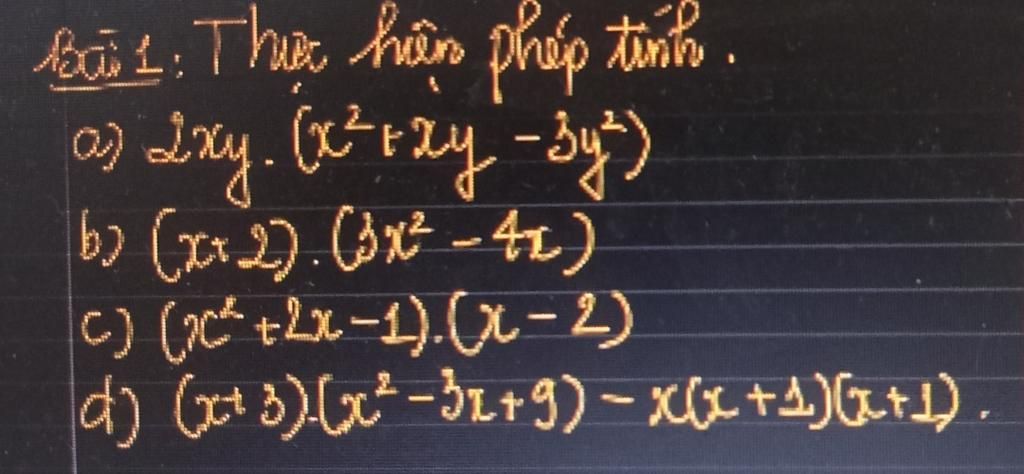 Bài 1: Thực hiện phép tính.
a) 2xy. (x² + xy - 3y²)
b) (x + 2). (3x² - 4x)
c) (x² + 2x - 1).(x - 2)
d) (x + 3).(x² - 3x + 9) - x(x + 1)(x + 1).